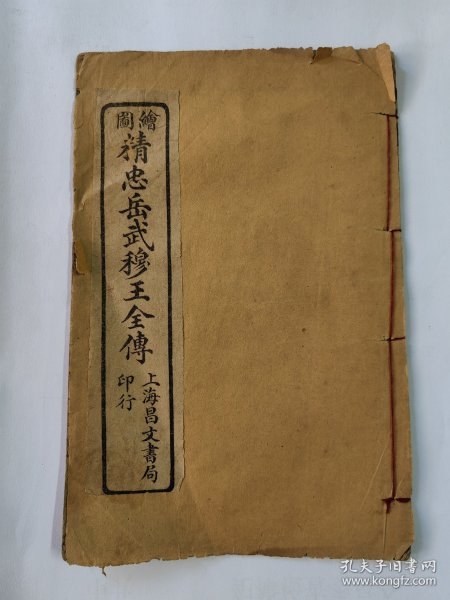 繪圖
精忠岳武穆王全傳
上海昌文書局
印行
孔夫子旧书网
www.kongfz.com